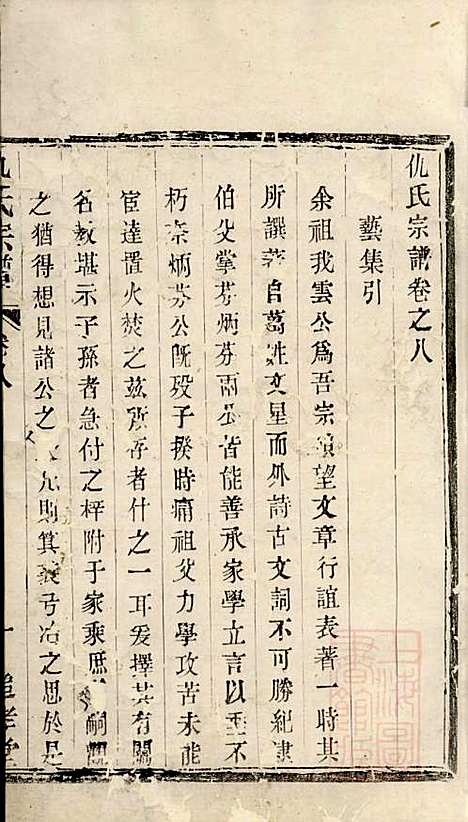 仇氏宗譜卷之八
藝集引
余祖我雲公為吾宗碩望文章行誼表著一時其
所譔著自葛姓文星而外詩古文詞不可勝紀逮
伯父掌芬炳芬兩公皆能善承家學立言以垂不
朽奈炳芬公旣歿子揆時痛祖父力學攻苦未能
宦達置火焚之茲所存者什之一耳爰擇其有關
名敎堪示子孫者急付之梓附于家乘庶嗣
之猶得想見諸公之允則箕裘弓冶之思於是
仇氏宗譜
卷八
一
追孝堂